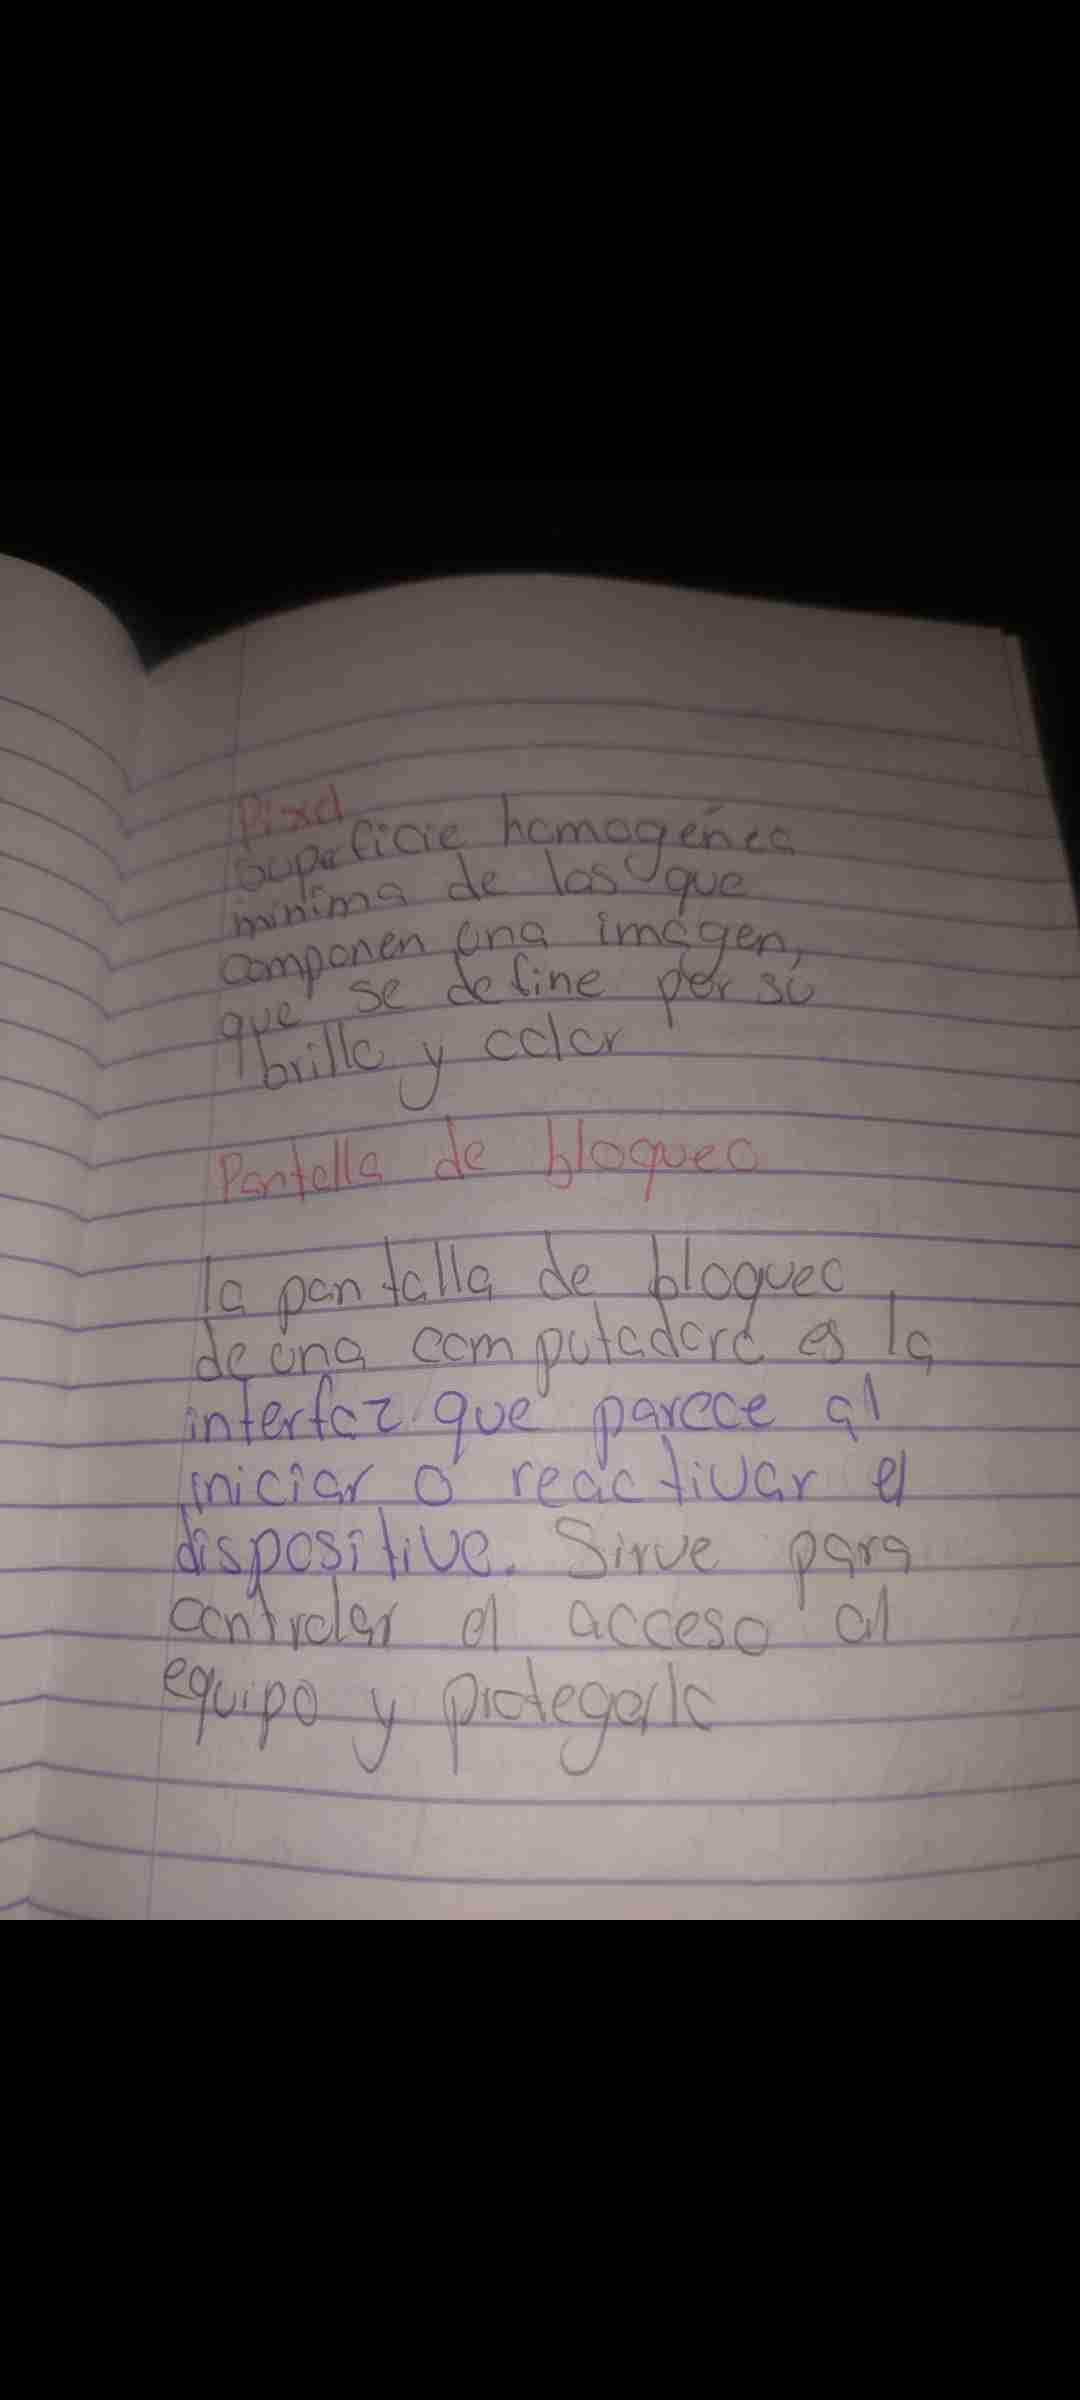 Pixel
Superficie homogénea
minima de las que
componen una imágen,
que se define por su
brillo y color
Pantalla de bloqueo
la pantalla de bloqueo
de una computadora es la
interfaz que parece al
iniciar o reactivar el
dispositivo. Sirve para
controlar el acceso al
equipo y protegerlo